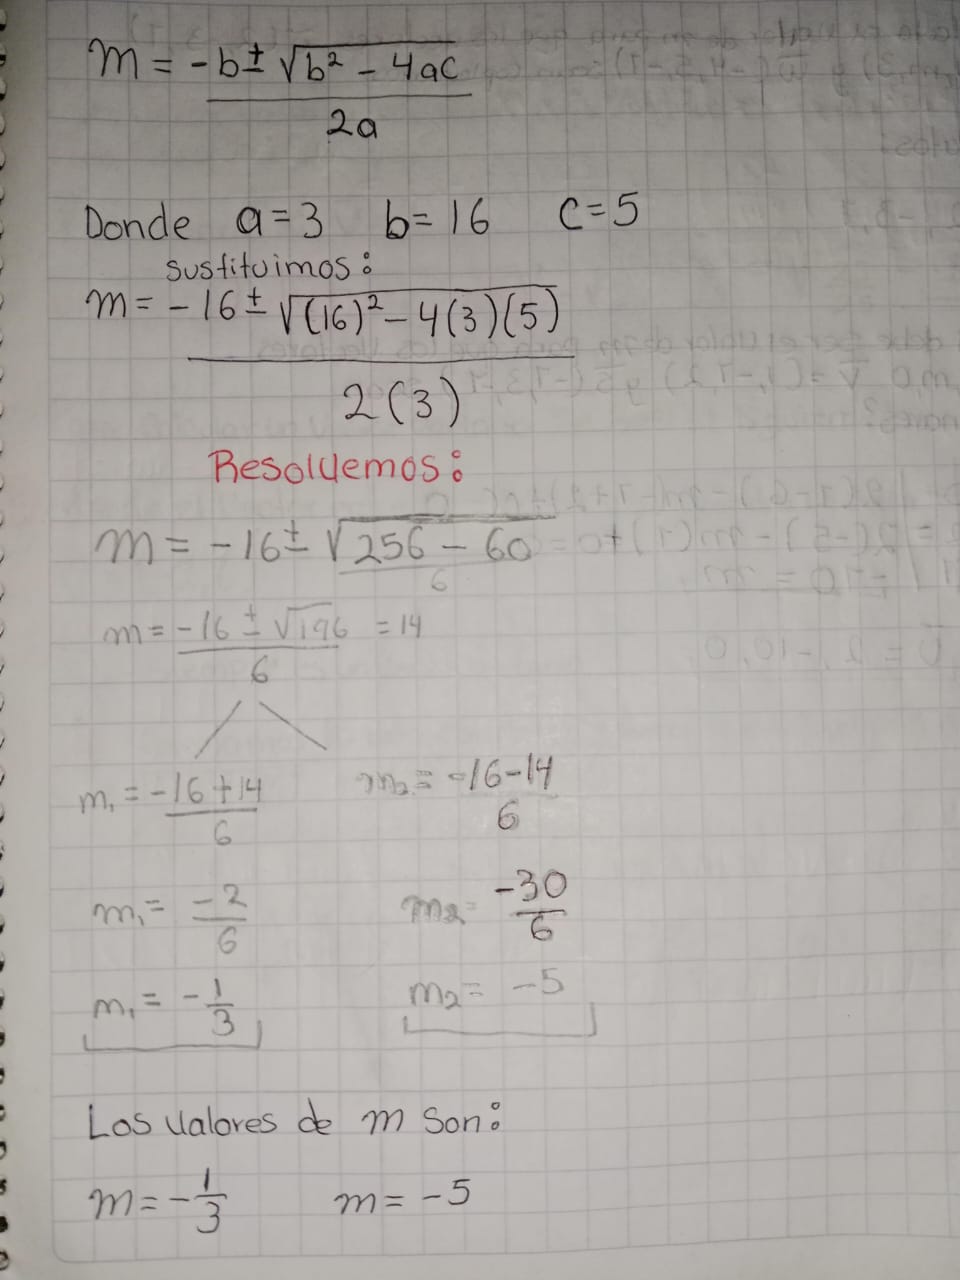 m = -b ± √b² - 4ac
2a
Donde a = 3 b = 16 c = 5
sustituimos:
m = -16 ± √(16)² - 4(3)(5)
2(3)
Resolvemos:
m = -16 ± √256 - 60
6
m = -16 ± √196 = 14
6
m₁ = -16 + 14 m₂ = -16 - 14
6 6
m₁ = -2 m₂ = -30
6 6
m₁ = -1/3 m₂ = -5
Los valores de m son:
m = -1/3 m = -5